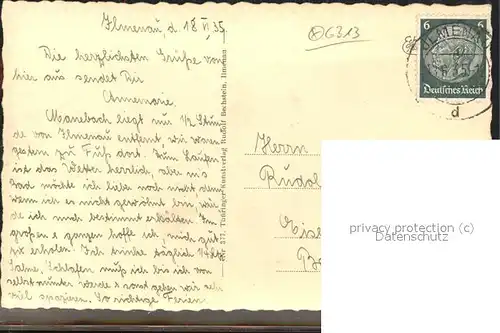 Ilmenau, d. 18. VI. 35.
Die herzlichsten Grüße von
hier aus sendet Dir
Annemarie.
Manebach liegt nur 1/2 Stun-
de von Ilmenau entfernt wir waren
gestern zu Fuß dort. Zum Laufen
ist das Wetter herrlich, aber ins
Bad möchte ich lieber noch nicht, denn
wenn ich es nicht gewöhnt bin, wür-
de ich mich bestimmt erkälten. Im
großen & ganzen hoffe ich, mich gut
zu erholen. Ich trinke täglich
Sahne, schlafen muß ich bis ich von
selbst munter werde & sonst gehen wir sehr
viel spazieren. So richtige Ferien.
Thüringer Kunstverlag Rudolf Bechstein, Ilmenau
G313
6 6
Deutsches Reich
ILMENAU
d
Herrn
Rudol
privacy protection (c)
Datenschutz